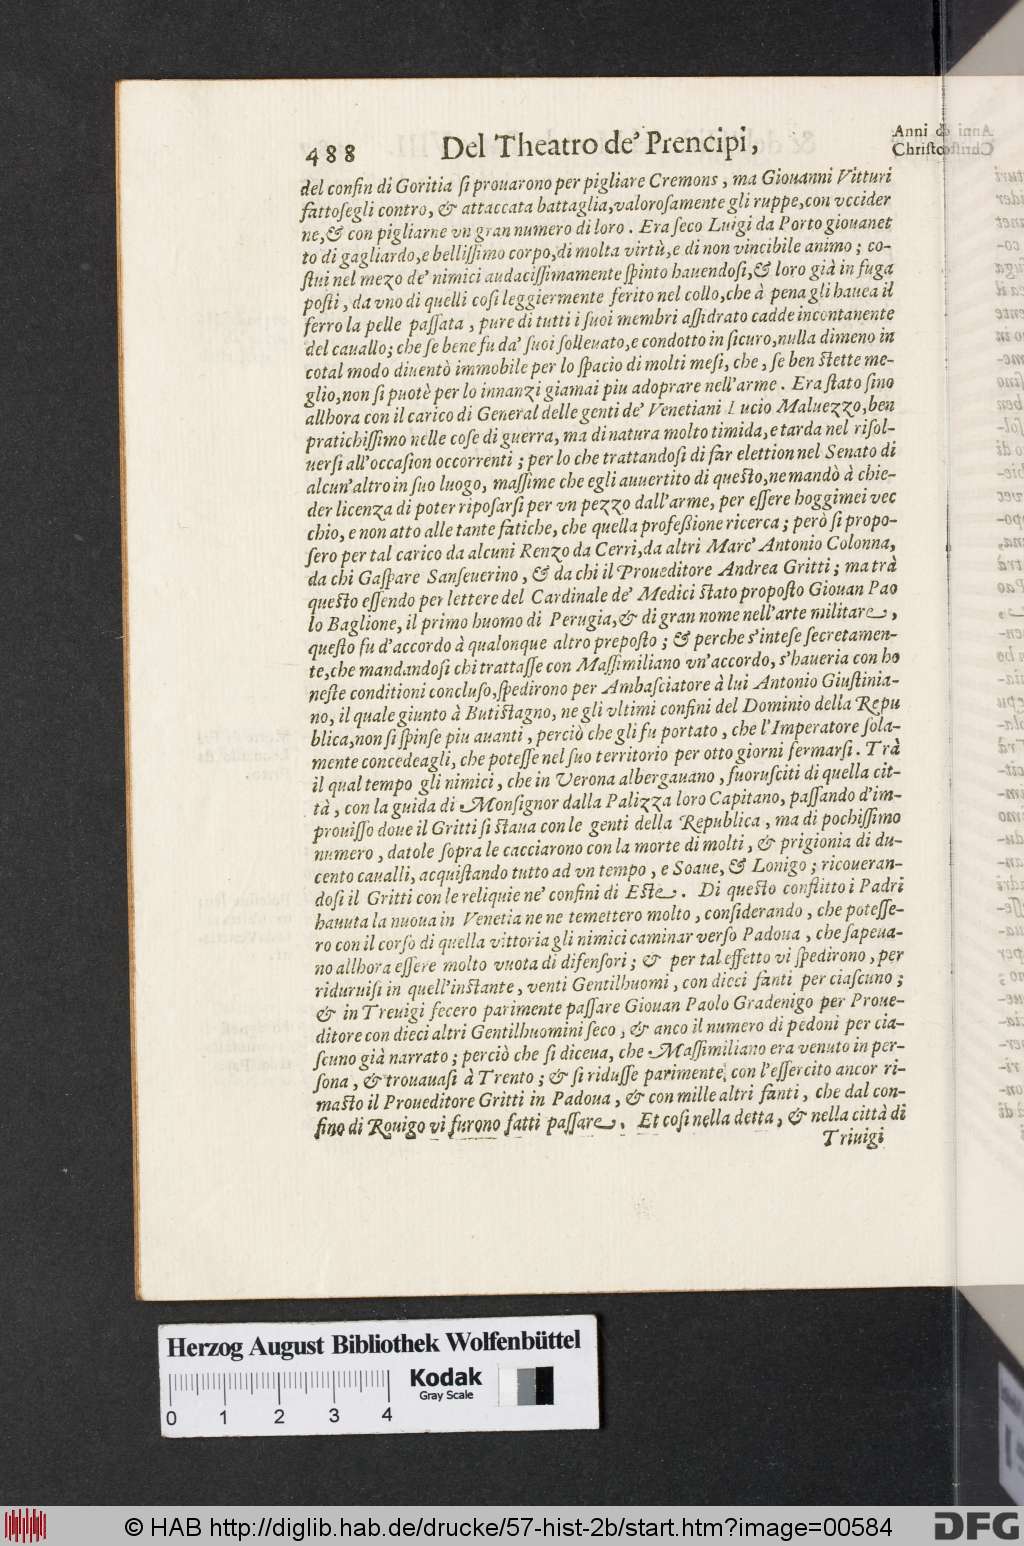 488 Del Theatro de' Prencipi,
Anni di
Christo
del confin di Goritia si prouarono per pigliare Cremons, ma Giouanni Vitturi
fattosegli contro, & attaccata battaglia, valorosamente gli ruppe, con vccider
ne, & con pigliarne vn gran numero di loro. Era seco Luigi da Porto giouanet
to di gagliardo, e bellissimo corpo, di molta virtù, e di non vincibile animo; co-
stui nel mezo de' nimici audacissimamente spinto hauendosi, & loro già in fuga
posti, da vno di quelli cosi leggiermente ferito nel collo, che à pena gli hauea il
ferro la pelle passata, pure di tutti i suoi membri assidrato cadde incontanente
del cauallo; che se bene fu da' suoi solleuato, e condotto in sicuro, nulla dimeno in
cotal modo diuentò immobile per lo spacio di molti mesi, che, se ben stette me-
glio, non si puotè per lo innanzi giamai piu adoprare nell'arme. Era stato sino
allhora con il carico di General delle genti de' Venetiani Lucio Maluezzo, ben
pratichissimo nelle cose di guerra, ma di natura molto timida, e tarda nel risol-
uersi all'occasion occorrenti; per lo che trattandosi di far elettion nel Senato di
alcun'altro in suo luogo, massime che egli auuertito di questo, ne mandò à chie-
der licenza di poter riposarsi per vn pezzo dall'arme, per essere hoggimei vec
chio, e non atto alle tante fatiche, che quella professione ricerca; però si propo-
sero per tal carico da alcuni Renzo da Cerri, da altri Marc' Antonio Colonna,
da chi Gaspare Sanseuerino, & da chi il Proueditore Andrea Gritti; ma trà
questo essendo per lettere del Cardinale de' Medici stato proposto Giouan Pao
lo Baglione, il primo huomo di Perugia, & di gran nome nell'arte militare,
questo fu d'accordo à qualonque altro preposto; & perche s'intese secretamen-
te, che mandandosi chi trattasse con Massimiliano vn'accordo, s'haueria con ho
neste conditioni concluso, spedirono per Ambasciatore à lui Antonio Giustinia-
no, il quale giunto à Butistagno, ne gli vltimi confini del Dominio della Repu
blica, non si spinse piu auanti, perciò che gli fu portato, che l'Imperatore sola-
mente concedeagli, che potesse nel suo territorio per otto giorni fermarsi. Trà
il qual tempo gli nimici, che in Verona albergauano, fuorusciti di quella cit-
tà, con la guida di Monsignor dalla Palizza loro Capitano, passando d'im-
prouisso doue il Gritti si staua con le genti della Republica, ma di pochissimo
numero, datole sopra le cacciarono con la morte di molti, & prigionia di du-
cento caualli, acquistando tutto ad vn tempo, e Soaue, & Lonigo; ricoueran-
dosi il Gritti con le reliquie ne' confini di Este. Di questo conflitto i Padri
hauuta la nuoua in Venetia ne ne temettero molto, considerando, che potesse-
ro con il corso di quella vittoria gli nimici caminar verso Padoua, che sapeua-
no allhora essere molto vuota di difensori; & per tal effetto vi spedirono, per
riduruisi in quell'instante, venti Gentilhuomi, con dieci fanti per ciascuno;
& in Treuigi fecero parimente passare Giouan Paolo Gradenigo per Proue-
ditore con dieci altri Gentilhuomini seco, & anco il numero di pedoni per cia-
scuno già narrato; perciò che si diceua, che Massimiliano era venuto in per-
sona, & trouauasi à Trento; & si ridusse parimente con l'essercito ancor ri-
masto il Proueditore Gritti in Padoua, & con mille altri fanti, che dal con-
fino di Rouigo vi furono fatti passare. Et cosi nella detta, & nella città di
Triuigi
Herzog August Bibliothek Wolfenbüttel
Kodak
Gray Scale
0 1 2 3 4
© HAB http://diglib.hab.de/drucke/57-hist-2b/start.htm?image=00584
DFG